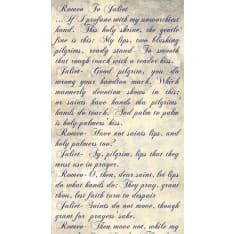 Romeo To Juliet
...If I profane with my unworthiest
hand. This holy shrine, the gentle
fine is this: My lips, two blushing
pilgrims, ready stand To smooth
that rough touch with a tender kiss.
Juliet- Good pilgrim, you do
wrong your handtoo much, Which
mannerly devotion shows in this;
or saints have hands tha pilgrims
hands do touch, And palm to palm
is holy palmers' kiss.
Romeo- Have not saints lips, and
holy palmers too?
Juliet- Ay, pilgrim, lips that they
must use in prayer.
Romeo- O, then, dear saint, let lips
do what hands do; They pray, grant
thou, lest faith turn to despair
Juliet- Saints do not move, though
grant for prayers sake.
Romeo- Then move not, while my